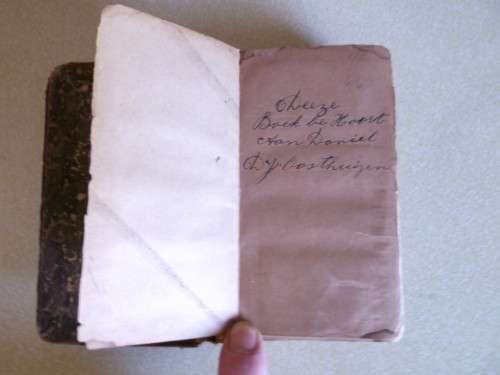 Deeze
Boek be Hoort
Aan Daniel
D J Oosthuizen